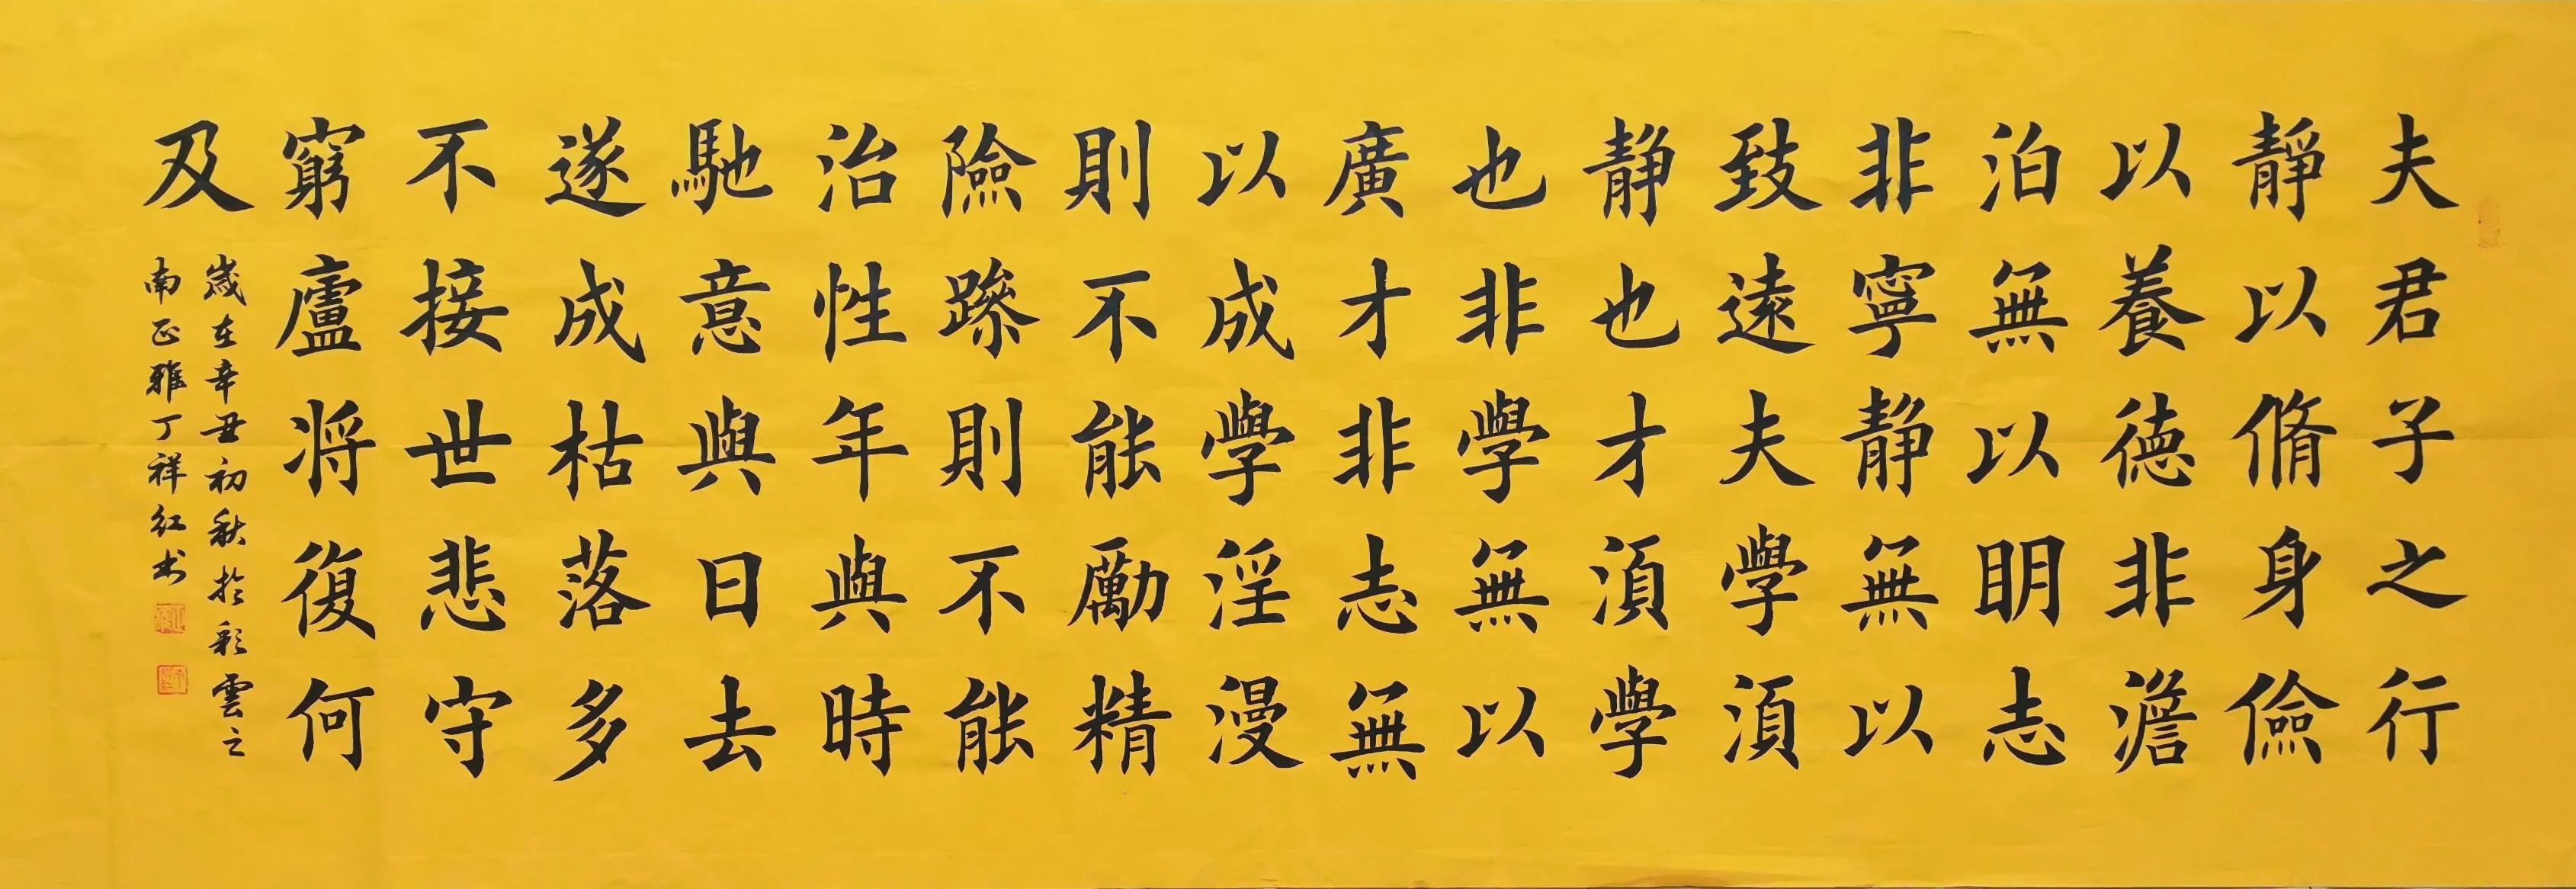 夫君子之行
靜以脩身儉
以養德非澹
泊無以眀志
非寧静無以
致遠夫學湏
静也才湏學
也非學無以
廣才非志無
以成學淫漫
則不能勵精
險躁則不能
治性年與時
馳意與日去
遂成枯落多
不接世悲守
窮廬将復何
及
歲在辛丑初秋於彩雲之
南正雅丁祥红书